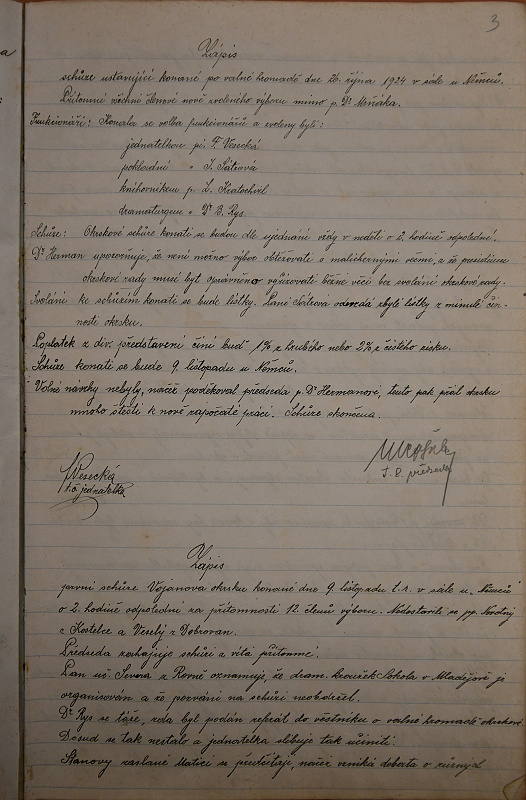 3
Zápis
schůze ustavující konané po valné hromadě dne 26. října 1924 v sále u Němců.
Přítomni všichni členové nově zvoleného výboru mimo p. Dr Mrňáka.
Funkcionáři: Konala se volba funkcionářů a zvoleny byli:
jednatelkou pí. F. Vesecká
pokladní " I. Šátrová
knihovníkem p. L. Kratochvíl
dramaturgem " Dr B. Rys
Schůze: Okrskové schůze konati se budou dle ujednání vždy v neděli o 2. hodině odpolední.
Dr Herman upozorňuje, že není možno výbor obtěžovati s malichernými věcmi, a že presidium
okrskové rady musí být oprávněno vyřizovati běžné věci bez svolání okrskové rady.
Svolání ke schůzím konati se bude lístky. Paní Šátrová odevzdá zbylé lístky z minulé čin-
nosti okrsku.
Poplatek z div. představení činí buď 1% z hrubého nebo 2% z čistého zisku.
Schůze konati se bude 9. listopadu u Němců.
Volné návrhy nebyly, načež poděkoval předseda p. Dr Hermanovi, tento pak přál okrsku
mnoho štěstí k nově započaté práci. Schůze skončena.
Vesecká
t. č. jednatelka
předseda
Zápis
první schůze Vojanova okrsku konané dne 9. listopadu t. r. v sále u Němců
o 2. hodině odpolední za přítomnosti 12. členů výboru. Nedostavili se pp. Novotný
z Kostelce a Veselý z Dobrovan.
Předseda zahajuje schůzi a vítá přítomné.
Pan uč. Ševora z Rovně oznamuje, že dram. kroužek Sokola v Mladějově je
organisován a že pozvání na schůzi neobdržel.
Dr Rys se táže, zda byl podán referát do věstníku o valné hromadě okrskové.
Dosud se tak nestalo a jednatelka slibuje tak učiniti.
Stanovy zaslané Maticí se předčítají, načež vzniká debata o různých